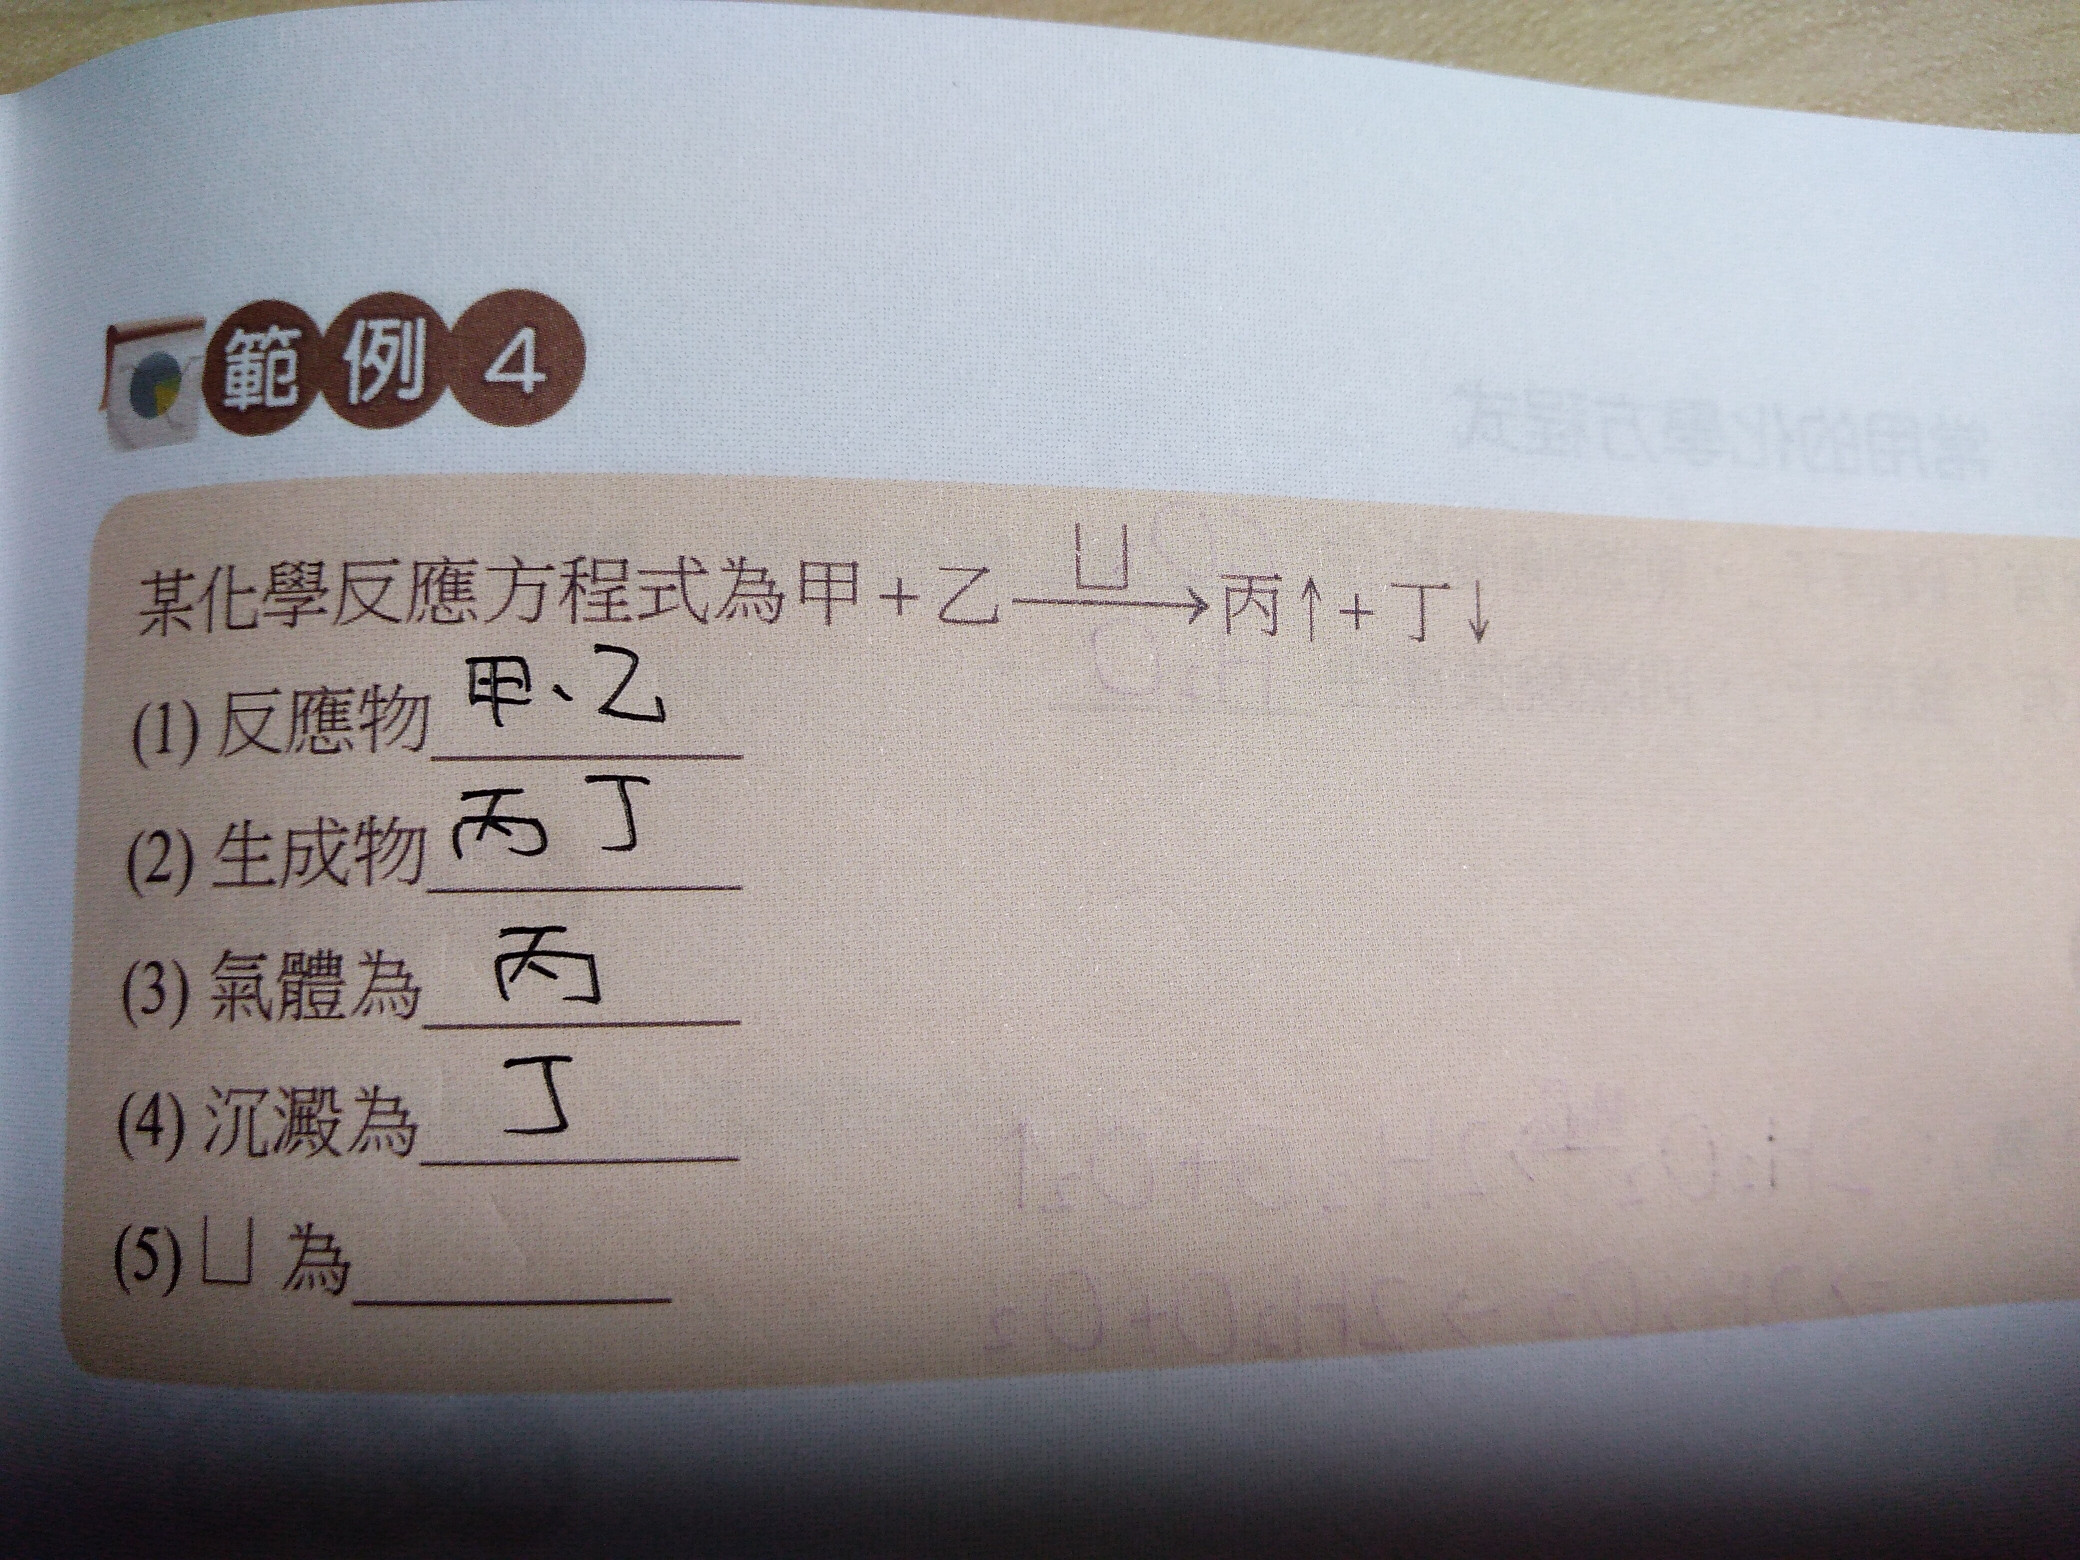 範例4
某化學反應方程式為甲+乙 ㄩ→ 丙↑+丁↓
(1) 反應物 甲、乙
(2) 生成物 丙 丁
(3) 氣體為 丙
(4) 沉澱為 丁
(5) ㄩ 為